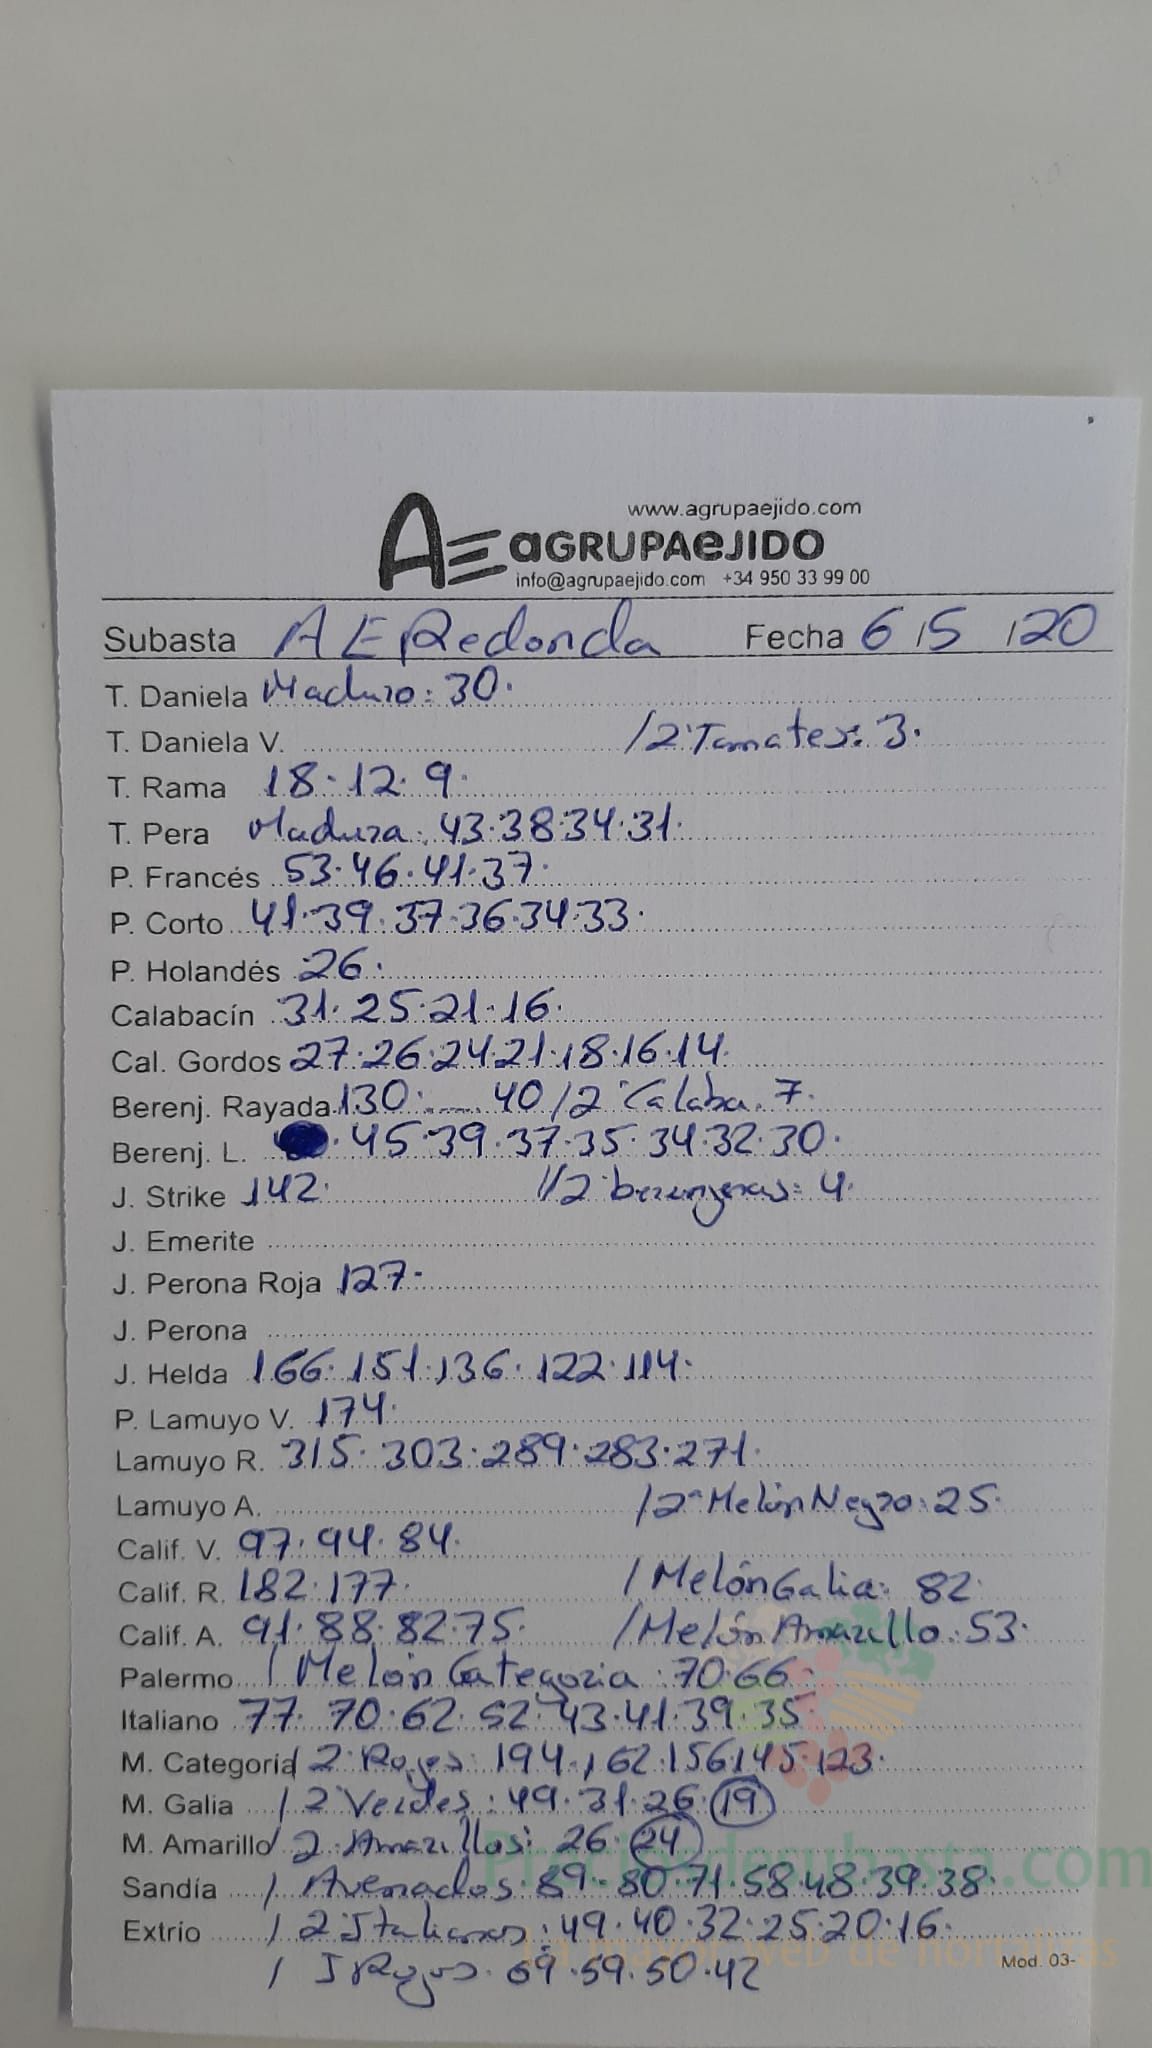 www.agrupaejido.com
AE aGRUPAeJIDO
info@agrupaejido.com +34 950 33 99 00
Subasta AE Redonda Fecha 6/5/20
T. Daniela Maduro: 30.
T. Daniela V. /2ª Tomates: 3.
T. Rama 18.12.9.
T. Pera Madura: 43.38.34.31.
P. Francés 53.46.41.37.
P. Corto 41.39.37.36.34.33.
P. Holandés 26.
Calabacín 31.25.21.16.
Cal. Gordos 27.26.24.21.18.16.14.
Berenj. Rayada 130.___.40/2ª Calaba. 7.
Berenj. L. .45.39.37.35.34.32.30.
J. Strike 142. //2ª berenjenas: 4.
J. Emerite
J. Perona Roja 127.
J. Perona
J. Helda 166.151.136.122.114.
P. Lamuyo V. 174.
Lamuyo R. 315.303.289.283.271.
Lamuyo A. /2ª Melón Negro: 25.
Calif. V. 97.94.84.
Calif. R. 182.177. /Melón Galia: 82.
Calif. A. 91.88.82.75. /Melón Amarillo: 53.
Palermo / Melón Categoria: 70.66.
Italiano 77.70.62.52.43.41.39.35
M. Categoría / 2ª Rojos: 194.162.156.145.123.
M. Galia / 2 Verdes: 49.31.26.19
M. Amarillo / 2 Amarillos: 26.24
Sandía / Avenados 89.80.71.58.48.39.38
Extrio / 2 Italianos: 49.40.32.25.20.16.
/ I Rojos: 69.59.50.42
Mod. 03-
Preciosdesubasta.com
La mayor web de hortalizas